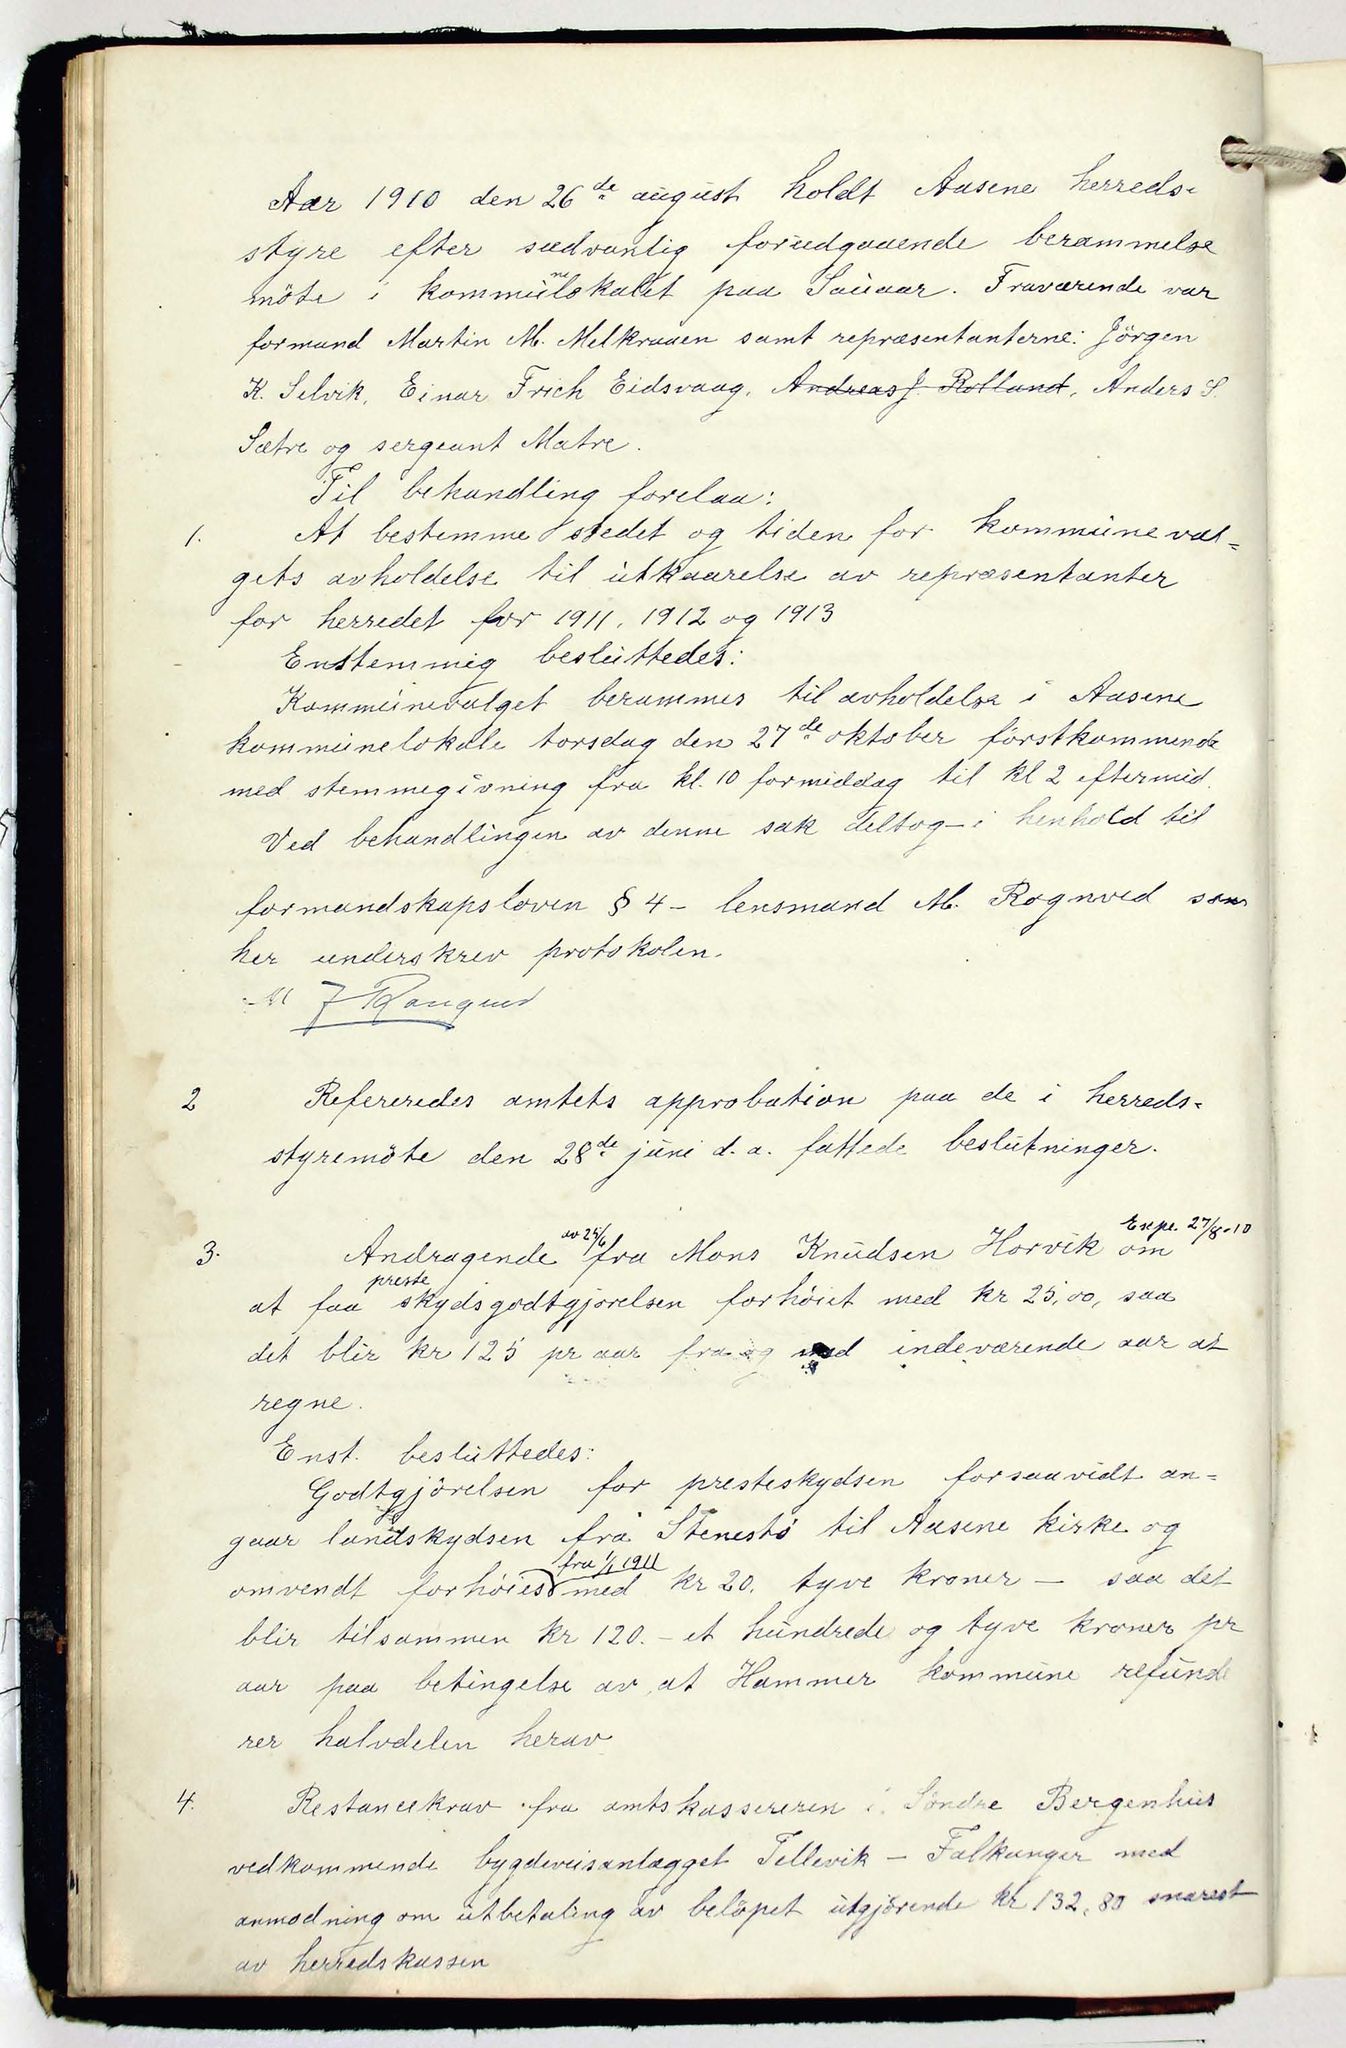 Aar 1910 den 26de august holdt Aasene herreds-
styre efter sædvanlig forudgaaende berammelse
möte i kommunelokalet paa Sauaar. Fraværende var
formand Martin M. Melkraaen samt repræsentanterne: Jörgen
K. Selvik, Einar Frich Eidsvaag, Andreas J. Rolland, Anders S.
Sætre og sergeant Matre.
Til behandling forelaa:
1. At bestemme stedet og tiden for kommuneval=
gets avholdelse til utkaarelse av repræsentanter
for herredet for 1911, 1912 og 1913
Enstemmig besluttedes:
Kommunevalget berammes til avholdelse i Aasene
kommunelokale torsdag den 27de oktober förstkommende
med stemmegivning fra kl. 10 formiddag til kl 2 eftermid.
Ved behandlingen av denne sak deltog - i henhold til
formandskapsloven § 4 - lensmand M. Rognved som
her underskrev protokolen.
M J Rongved
2 Refereredes amtets approbation paa de i herreds-
styremöte den 28de juni d.a. fattede beslutninger.
Expe. 27/8-10
3. Andragende av 25/6 fra Mons Knudsen Horvik om
at faa presteskydsgodtgjörelsen forhöiet med kr 25,00, saa
det blir kr 125 pr aar fra og med indeværende aar at
regne.
Enst. besluttedes:
Godtgjörelsen for presteskydsen forsaavidt an=
gaar landskydsen fra Stenestö til Aasene kirke og
omvendt forhöies fra 1/1 1911 med kr 20. tyve kroner - saa det
blir tilsammen kr 120. - et hundrede og tyve kroner pr
aar paa betingelse av at Hammer kommune refunde
rer halvdelen herav
4. Restancekrav fra amtskassereren i Söndre Bergenhus
vedkommende bygdeveisanlægget Tellevik - Falkanger med
anmodning om utbetaling av belöpet utgjörende kr 132,80 snarest
av herredskassen